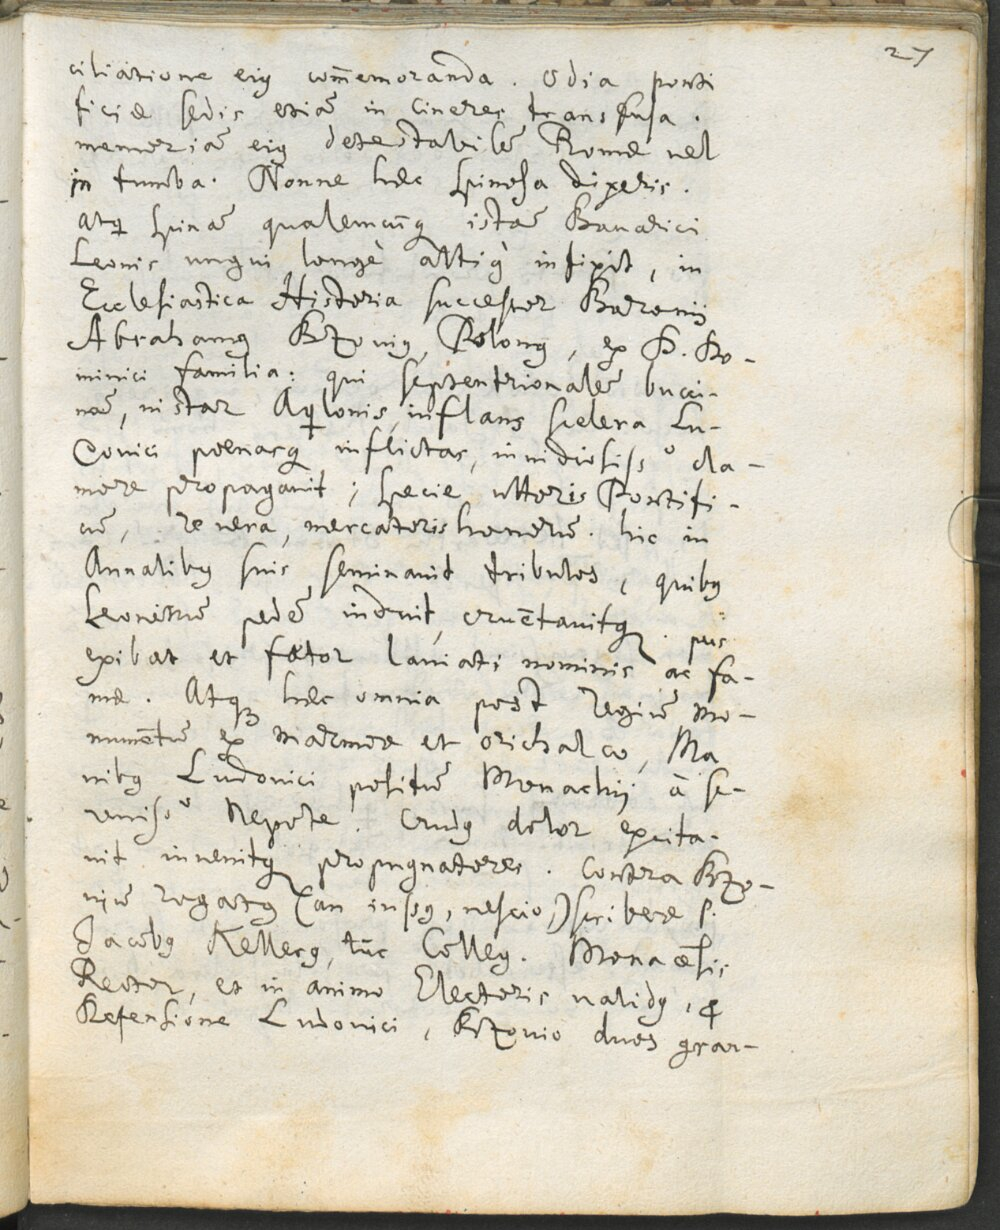 27
ciliatione eiꝰ com̄emoranda. Odia ponti
ficiæ sedis etiā in cineres transfusa.
memoriā eiꝰ detestabilē Romæ uel
in tumba. Nonne hæc spinosa dixeris.
atq̨ spinā qualemcūq̨ istā Bauarici
Leonis ungui longè altiꝰ infixit, in
Ecclesiastica Historia successor Baronij
Abrahamꝰ Bzouiꝰ, Polonꝰ, ex D. Do-
minici familia: qui septentrionalē bucci-
nā, instar Aq̨lonis, inflans scelera Lu-
douici pœnasq̨ inflictas, inuidiosissᵒ cla-
more propagauit; specie ultoris Pontifi-
cū, re uera, mercatoris honorū. hic in
Annalibꝰ suis seminauit tribulos, quibꝰ
Leoninū pedē induit, cruētauitq̨. pus
exibat et fœtor laniati nominis ac fa-
mæ. Atq̨ hæc omnia post regiū mo-
numētū ex marmore et orichalco, Ma
nibꝰ Ludouici positū Monachij à se-
renissᵒ Nepote. Crudꝰ dolor excita-
uit inuenitq̨ propugnatores. Contra Bzo-
uiū rogatꝰ (an iussꝰ, nescio,) scribere P.
Jacobꝰ Kellerꝰ, tūc Colleg. Monacēsis
Rector, et in animo Electoris validꝰ, p
Defensione Ludouici, Bzouio duos grau-